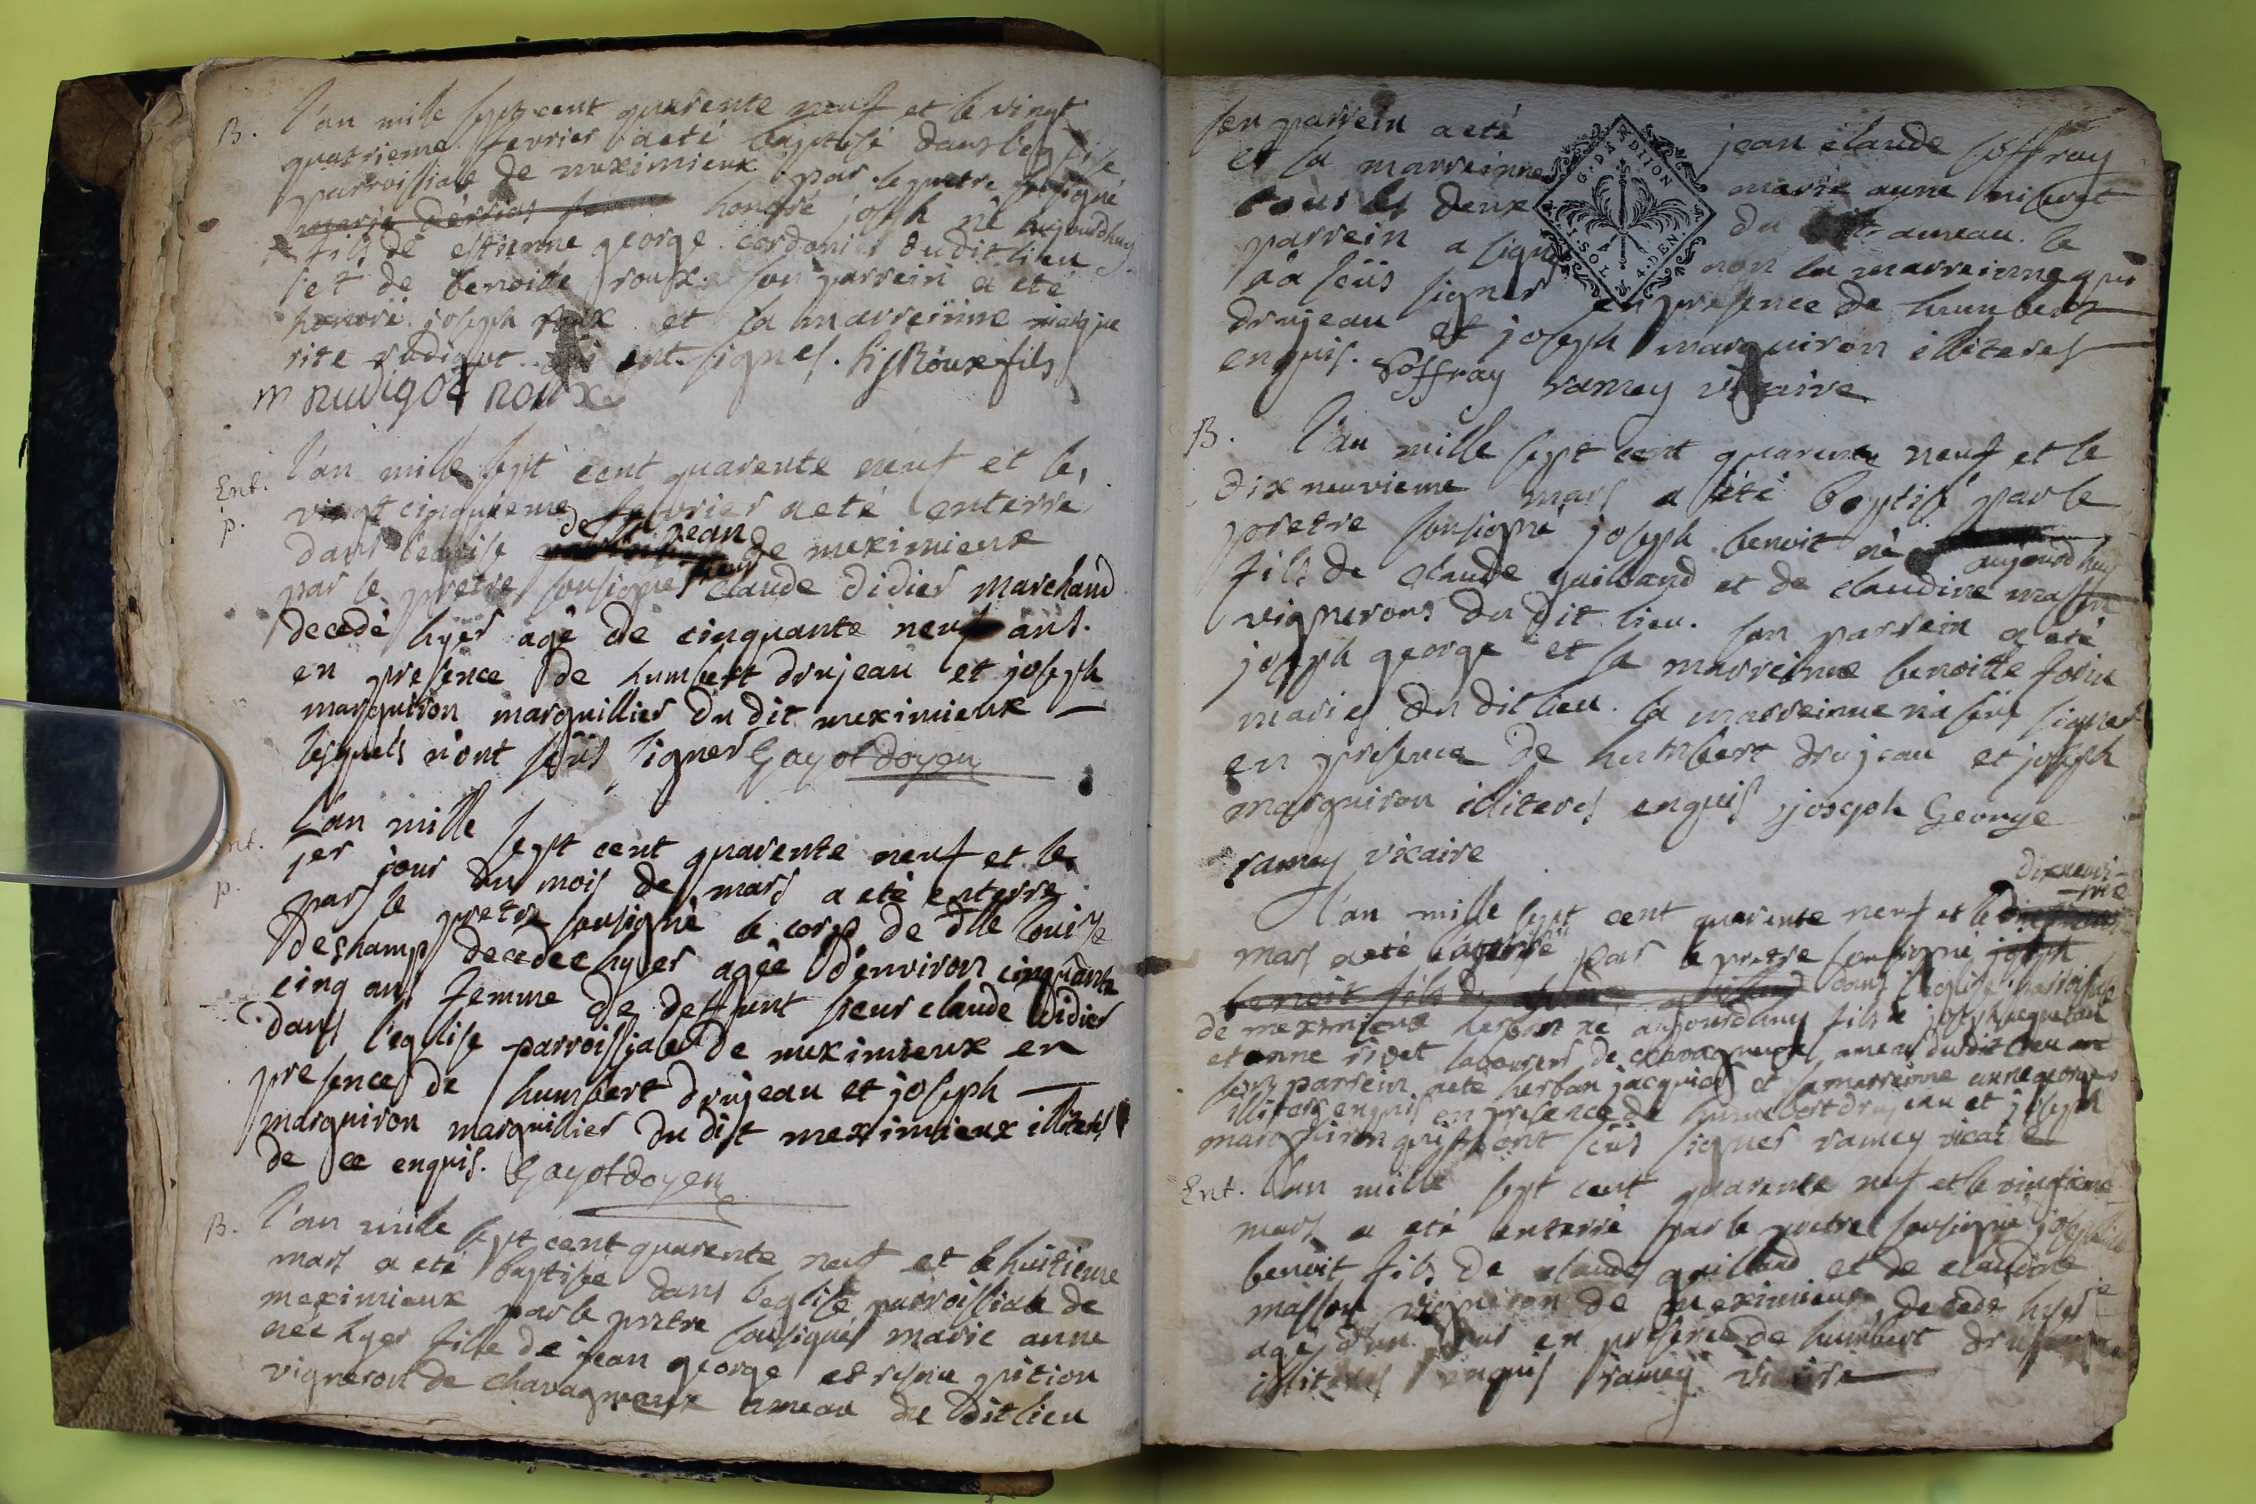 B. l'an mille sept cent quarente neuf et le vingt
quatrieme fevrier a eté baptisé dans l'eglise
parroissiale de meximieux par le pretre sousigné
honoré joseph né aujourdhuy
fils de estienne george cordonier dudit lieu
et de benoite roux. son parrein a eté
honoré joseph roux et la marreinne margue
rite rudigot qui ont signes. hj Roux fils
m rudigot roux
Ent. l'an mille sept cent quarente neuf et le
p. vingt cinquieme fevrier a eté enterré
de st jean
dans l'eglise de meximieux
par le pretre sousigné sieur claude didier marchand
decedé hyer agé de cinquante neuf ans.
en presence de humbert drujeau et joseph
marguiron marguillier du dit meximieux —
lesquels n'ont sçûs signer Gayot doyen
Ent. l'an mille sept cent quarente neuf et le
1er jour du mois de mars a eté enterré
p. par le pretre sousigné le corps de dlle louise
deschamps decedee hyer agée d'environ cinquante
cinq ans femme de deffunt sieur claude didier
dans l'eglise parroissiale de meximieux en
presence de humbert drujeau et joseph —
marguiron marguillier du dit meximieux illiteres
de ce enquis. Gayot doyen
B. l'an mille sept cent quarente neuf et le huitieme
mars a eté baptisée dans l'eglise parroissiale de
meximieux par le pretre sousigné marie anne
née hyer fille de jean george et pition
vigneron de chavagneux ameau du dit lieu
son parrein a eté jean claude soffray
et la marreinne marie anne niseret
tous les deux du dit ameau. le
parrein a signé non la marreinne qui
n'a sçûs signer en presence de humbert
drujeau et joseph marguiron illiteres
enquis. Soffray ramey vicaire
G. D. DIJON
I. SOL. 4. DEN.
B. l'an mille sept cent quarente neuf et le
dix neuvieme mars a été baptisé par le
pretre sousigné joseph benoit né aujourdhuy
fils de claude guilland et de claudine masson
vignerons du dit lieu. son parrein a eté
joseph george et la marreinne benoitte
maries du dit lieu. la marreinne n'a sçûs signer
en presence de humbert drujeau et joseph
marguiron illiteres enquis joseph George
ramey vicaire
dixneuvi-
eme
l'an mille sept cent quarente neuf et le
mars a eté baptisé par le pretre sousigné joseph
benoit fils de claude guilland dans l'eglise parroissiale
de meximieux herban né aujourdhuy fils a joseph
et anne rivet laboureur de chavagneux ameau du dit lieu
son parrein a eté herban jacquier et la marreinne anne george
illiteres enquis en presence de humbert drujeau et joseph
marguiron qui n'ont sçûs signer ramey vicaire
Ent. l'an mille sept cent quarente neuf et le vingtieme
mars a eté enterré par le pretre sousigné joseph
benoit fils de claude guilland et de claudine
masson vigneron de meximieux decedé hyer
agé d'un jour en presence de humbert drujeau
illiteres enquis ramey vicaire